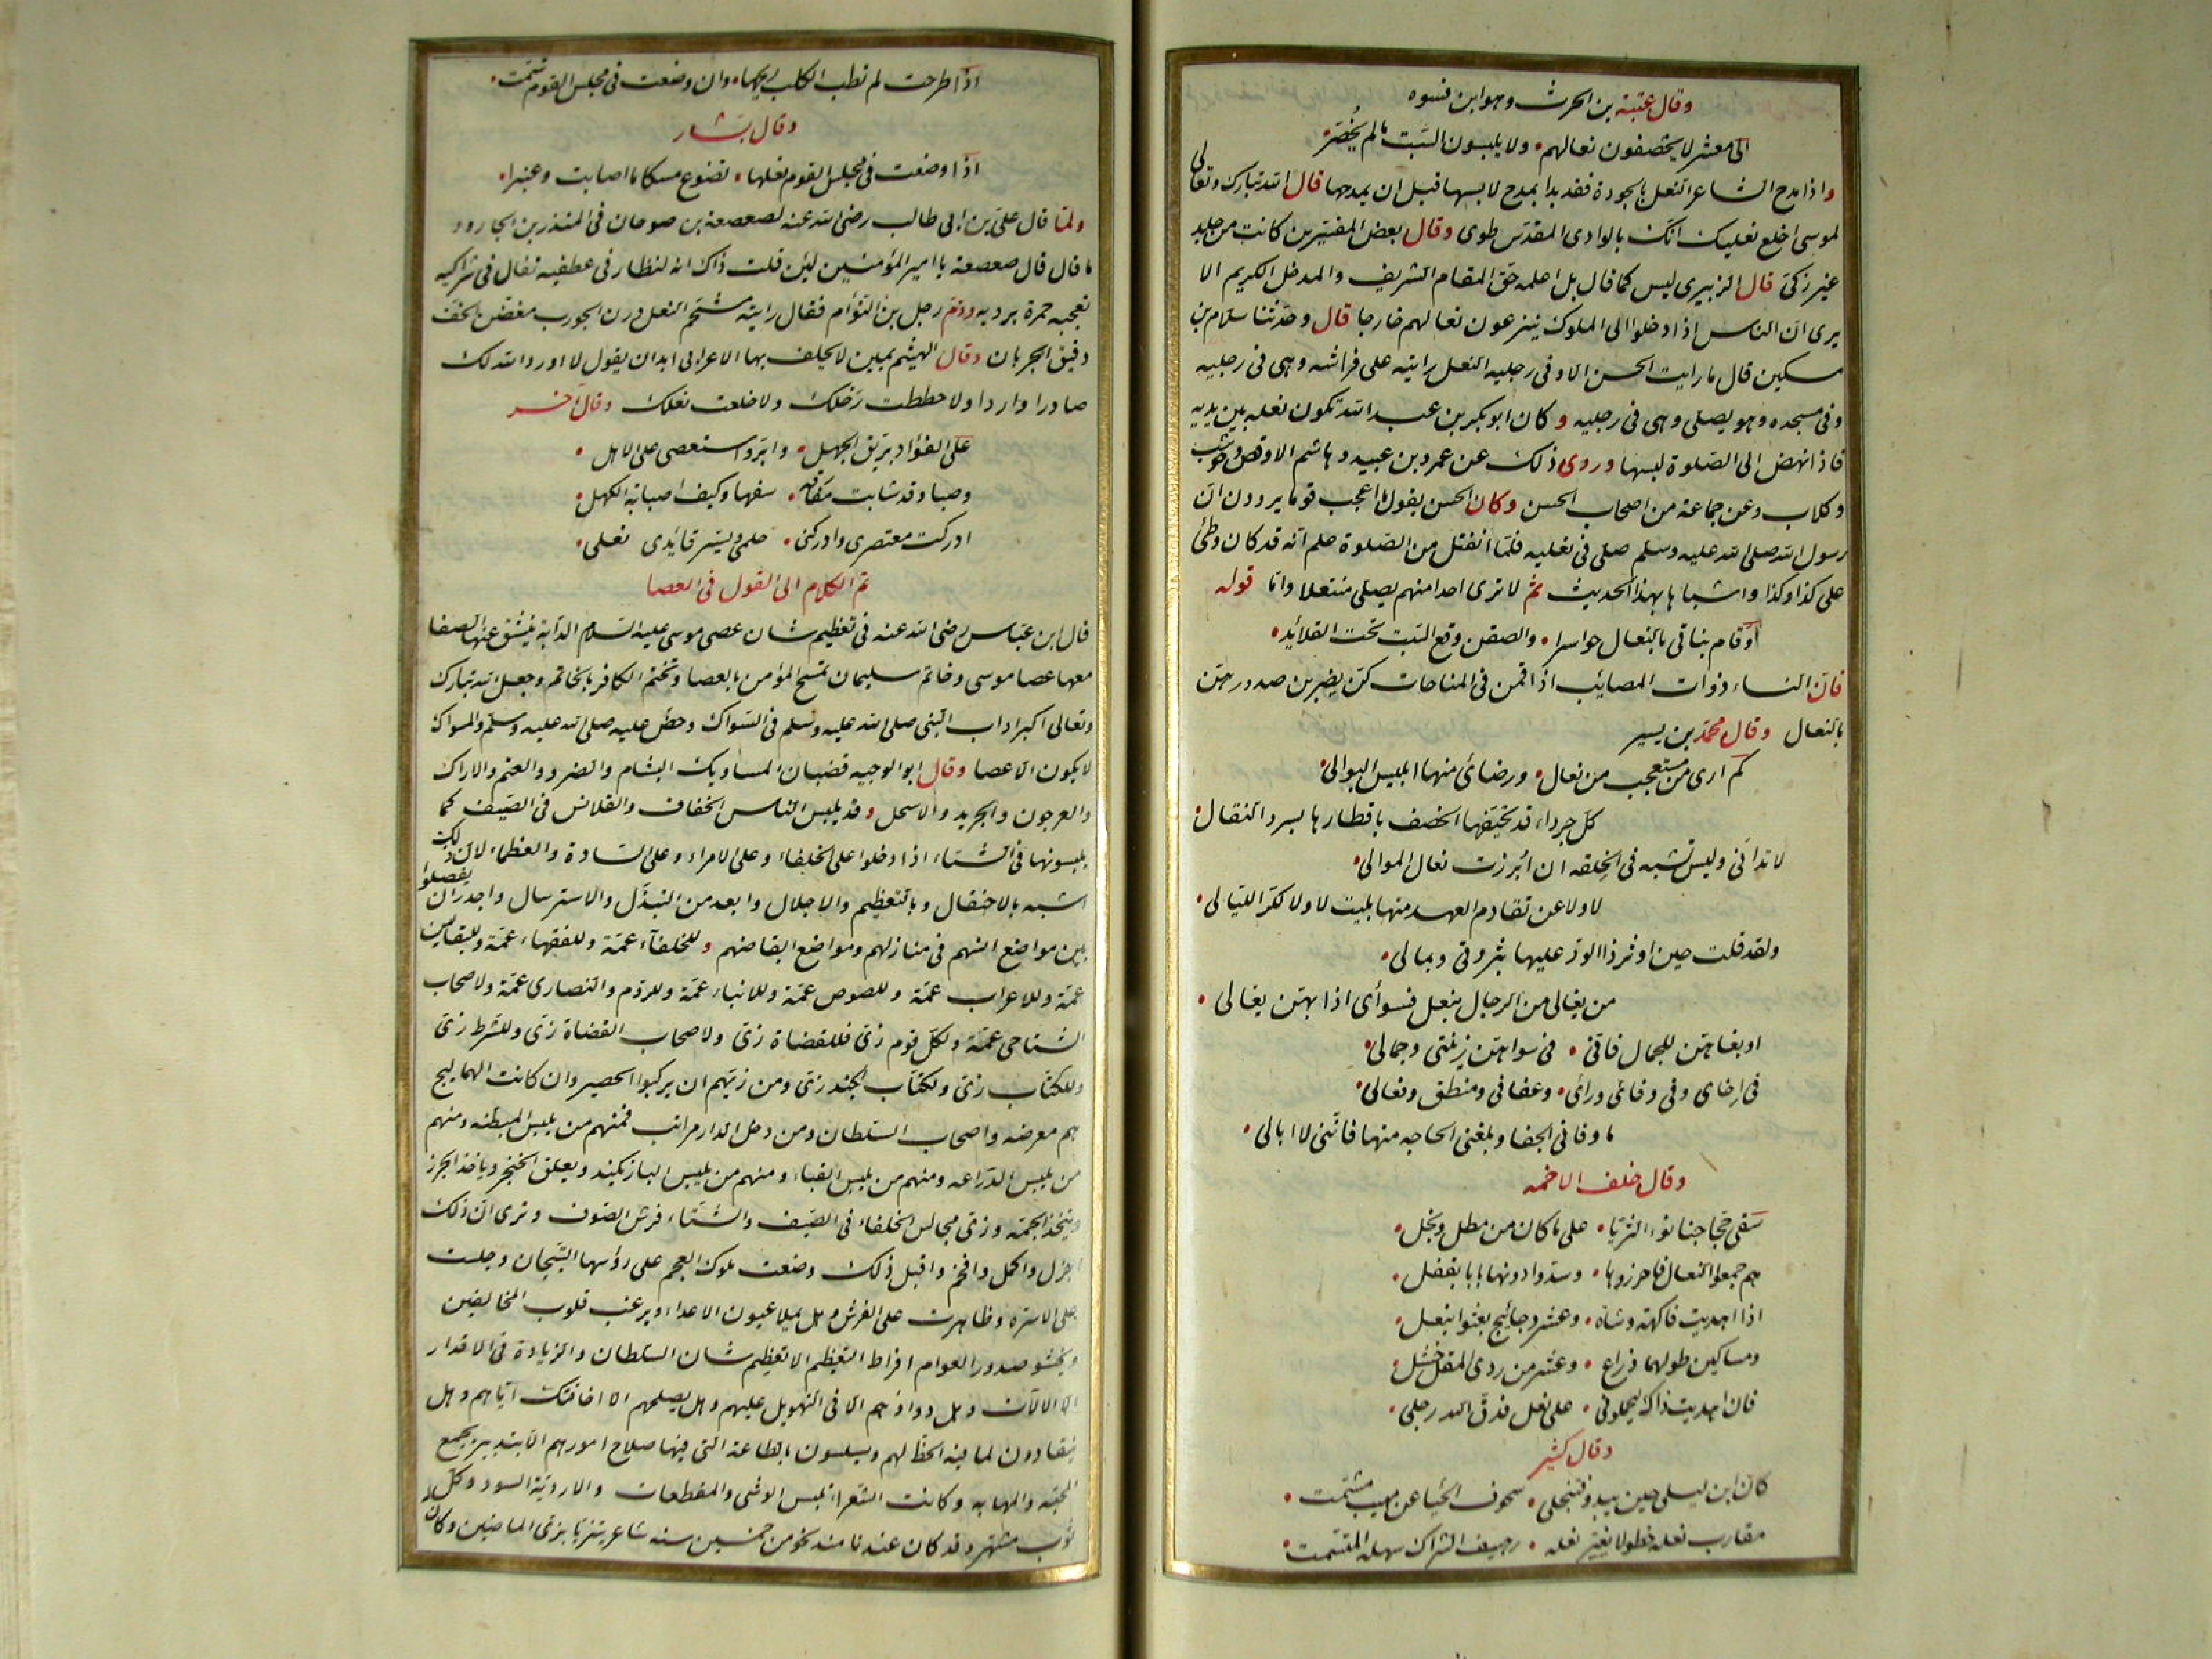 وقال عتبة بن الحرث وهو ابن فسوه
الى معشر لا يخصفون نعالهم ولا يلبسون السبت مالم يخصر
واذا مدح الشاعر النعل بالجودة فقد بدا بمدح لابسها قبل ان يمدحها قال الله تبارك وتعالى
لموسى اخلع نعليك انك بالوادى المقدس طوى وقال بعض المفسرين كانت من جلد
غير زكى قال الزبيرى ليس كما قال بل اعلمه حق المقام الشريف والمدخل الكريم الا
يرى ان الناس اذا دخلوا الى الملوك ينزعون نعالهم خارجا قال وحدثنا سلام بن
مسكين قال ما رايت الحسن الا وفى رجليه النعل رايته على فراشه وهى فى رجليه
وفى مسجده وهو يصلى وهى فى رجليه وكان ابو بكر بن عبد الله تكون نعله بين يديه
فاذا نهض الى الصلوة لبسها وروى ذلك عن عمرو بن عبيد وهاشم الاوقص وحوشب
وكلاب وعن جماعة من اصحاب الحسن وكان الحسن يقول ما اعجب قوما يروون ان
رسول الله صلى الله عليه وسلم صلى فى نعليه فلما انفتل من الصلوة علم انه قد كان وطئ
على كذا وكذا واشباها بهذا الحديث ثم لا ترى احدا منهم يصلى منتعلا واما قوله
وقام بناتى بالنعال حواسرا والصقن وقع السبت تحت القلائد
فان النساء ذوات المصائب اذا قمن فى المناحات كن يضربن صدورهن
بالنعال وقال محمد بن يسير
كم ارى من مستعجب من نعالى ورضائى منها بلبس البوالى
كل جرداء قد تحيفها الخصف باقطارها بسرد النقال
لا تدانى وليس تشبه فى الخلقه ان ابرزت نعال الموالى
لا ولا عن تقادم العهد منها بليت لا ولا لكر الليالى
ولقد قلت حين اوثر ذا الود عليها بثروتى وبمالى
من يغالى من الرجال بنعل فسوأى اذا بهن يغالى
او بغاهن للجمال فانى فى سواهن زينتى وجمالى
فى اخاى وفى وفائى ورأى وعفافى ومنطقى وفعالى
ما وقانى الحفا وبلغنى الحاجه منها فاننى لا ابالى
وقال خلف الاحمر
سقى حجاجنا نوء الثريا على ما كان من مطل وبخل
هم جمعوا النعال فاحرزوها وسدوا دونها بابا بقفل
اذا اهديت فاكهة وشاة وعشر دجائج بعثوا بنعل
ومساكين طولهما ذراع وعشر من ردى المقل خشل
فان اهديت ذاك ليحملونى على نعل فدق الله رجلى
وقال كثير
كان ابن ليلى حين يبدو فتنجلى سجوف الخبا عن مهيب مشمت
مقارب خطو لا يغير نعله رهيف الشراك سهلة المتسمت
اذا طرحت لم تطب الكلب ريحها وان وضعت فى مجلس القوم شمت
وقال بشار
اذا وضعت فى مجلس القوم نعلها تضوع مسكا ما اصابت وعنبرا
ولما قال على بن ابى طالب رضى الله عنه لصعصعة بن صوحان فى المنذر بن الجارود
ما قال قال صعصعة يا امير المؤمنين لئن قلت ذاك انه لنظار فى عطفيه تفال فى شراكيه
تعجبه حمرة برديه وذم رجل بن التوأم فقال رايته مشحم النعل درن الجورب مغضن الخف
دقيق الجربان وقال الهيثم يمين لا يحلف بها الاعرابى ابدا ان يقول لا اورد الله لك
صادرا واردا ولا حططت رحلك ولا خلعت نعلك وقال آخر
على الفؤاد بريق الجهل وابر واستعصى على الاهل
وصبا وقد شابت مفارقه سفها وكيف اصبابة الكهل
ادركت معتصرى وادركنى حلمى ويسر قائدى نعلى
تم الكلام الى القول فى العصا
قال ابن عباس رضى الله عنه فى تعظيم شان عصى موسى عليه السلام الدابة ينشق عنها الصفا
معها عصا موسى وخاتم سليمان تمسح المؤمن بالعصا وتختم الكافر بالخاتم وجعل الله تبارك
وتعالى اكبر اداب النبى صلى الله عليه وسلم فى السواك وحض عليه صلى الله عليه وسلم والمسواك
لا يكون الا عصا وقال ابو الوجيه قضبان المساويك البشام والضرو والعتم والاراك
والعرجون والجريد والاسحل وقد يلبس الناس الخفاف والقلانس فى الصيف كما
يلبسونها فى الشتاء اذا دخلوا على الخلفاء وعلى الامراء وعلى السادة والعظماء لان ذلك
اشبه بالاحتفال وبالتعظيم والاجلال وابعد من التبذل والاسترسال واجدر ان يفصلوا
بين مواضع انسهم فى منازلهم ومواضع انقباضهم وللخلفاء عمة وللفقهاء عمة وللبقالين
عمة وللاعراب عمة وللصوص عمة وللانباء عمة وللروم والنصارى عمة ولاصحاب
الشاجى عمة ولكل قوم زى فللقضاة زى ولاصحاب القضاة زى وللشرط زى
وللكتاب زى ولكتاب الجند زى ومن زيهم ان يركبوا الحمير وان كانت الهماليج
هم معرضه واصحاب السلطان ومن دخل الدار مراتب فمنهم من يلبس المبطنه ومنهم
من يلبس الدراعه ومنهم من يلبس القباء ومنهم من يلبس البازيكند ويعلق الخنجر وياخذ الجرز
ويتخذ الجمة وزى مجالس الخلفاء فى الصيف والشتاء فرش الصوف وترى ان ذلك
اجزل واكمل وافخم واقبل ذلك وضعت ملوك العجم على رؤسها التيجان وجلست
على الاسرة وظاهرت على الفرش وهل يملا عيون الاعداء ويرعب قلوب المخالفين
ويحشو صدور العوام افراط التعظيم الا تعظيم شان السلطان والزيادة فى الاقدار
الا الالات وهل دواؤهم الا فى التهويل عليهم وهل يصلحهم الا اخافتك اياهم وهل
ينقادون لما فيه الحظ لهم ويسلسون بالطاعة التى فيها صلاح امورهم الا بتدبير يجمع
المحبة والمهابه وكانت الشعراء تلبس الوشى والمقطعات والاردية السود وكل
ثوب مشهر وقد كان عندنا منذ نحو من خمسين سنه شاعر يتزيا بزى الماضين وكان له